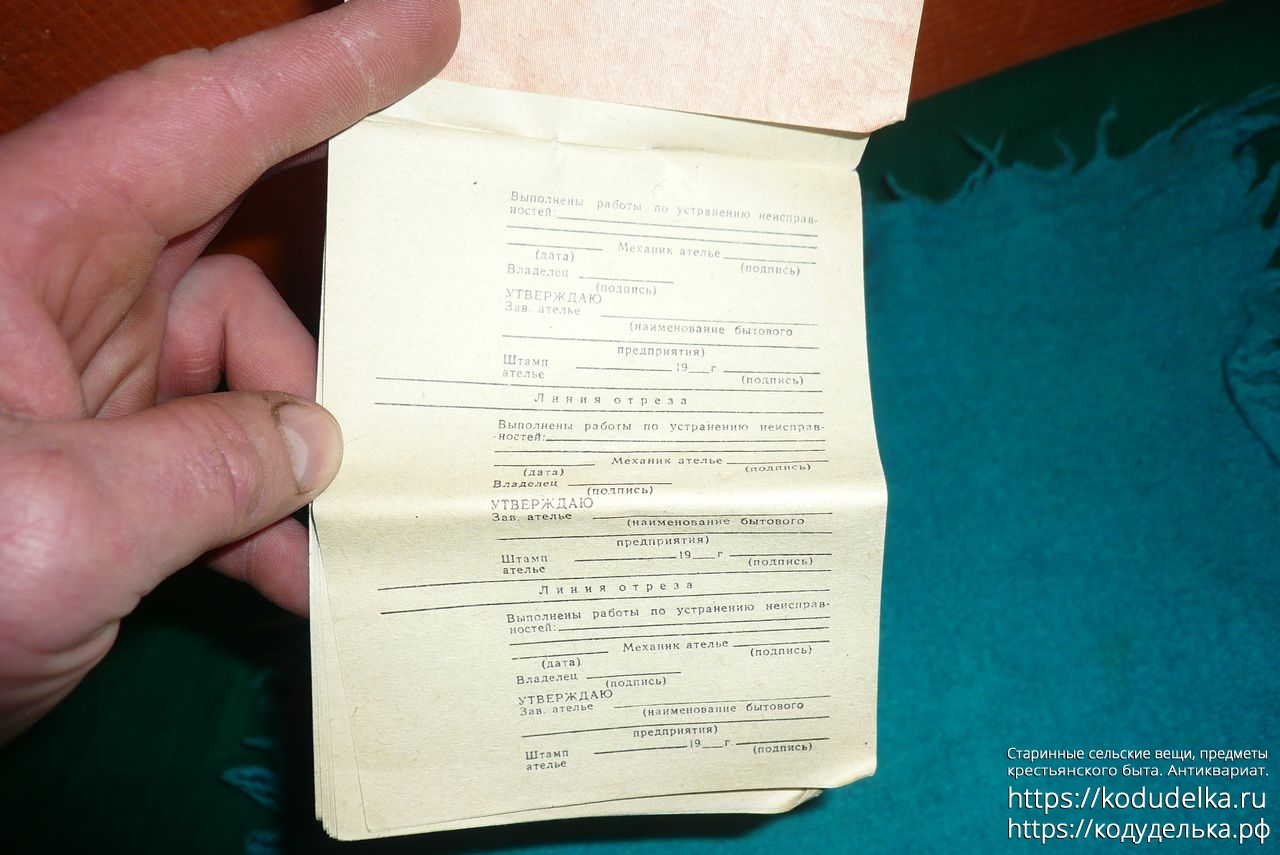 Выполнены работы по устранению неисправ-
ностей:
Механик ателье
(дата) (подпись)
Владелец
(подпись)
УТВЕРЖДАЮ
Зав. ателье
(наименование бытового
предприятия)
Штамп 19 г
ателье (подпись)
Линия отреза
Выполнены работы по устранению неисправ-
ностей:
Механик ателье
(дата) (подпись)
Владелец
(подпись)
УТВЕРЖДАЮ
Зав. ателье
(наименование бытового
предприятия)
Штамп 19 г
ателье (подпись)
Линия отреза
Выполнены работы по устранению неисправ-
ностей:
Механик ателье
(дата) (подпись)
Владелец
(подпись)
УТВЕРЖДАЮ
Зав. ателье
(наименование бытового
предприятия)
Штамп 19 г.
ателье (подпись)
Старинные сельские вещи, предметы
крестьянского быта. Антиквариат.
https://kodudelka.ru
https://кодуделька.рф